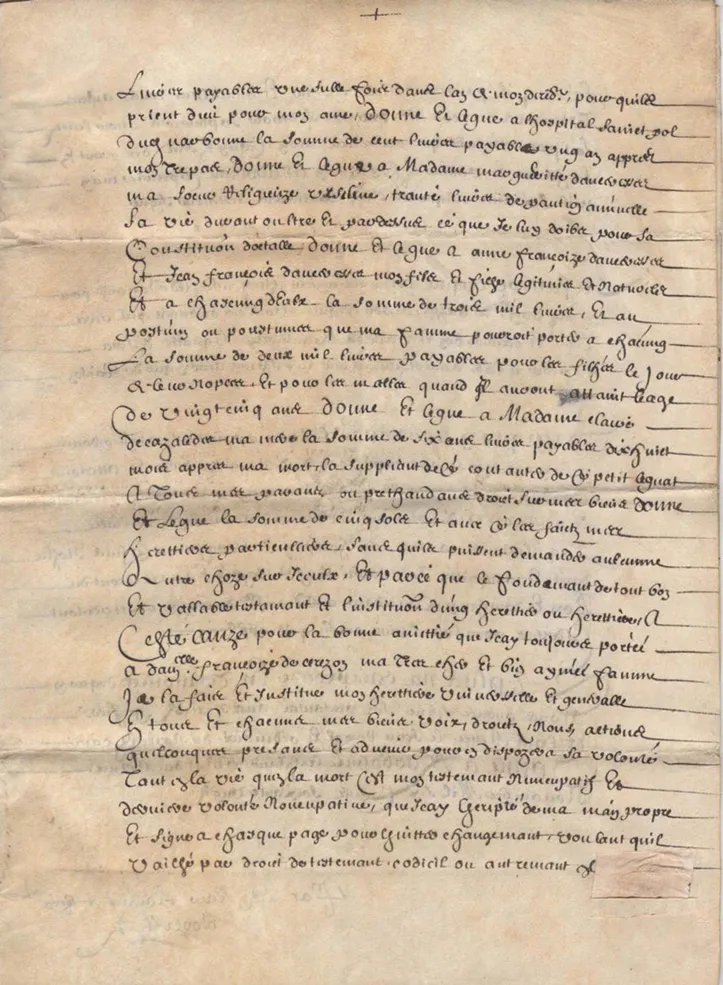 Livres payables une sulle fois dans lan de mon dicedz, pour quilz
prient dieu pour mon ame, Donne Et legue a lhospital sainct pol
dud narbonne la somme de cent livres payables ung an appres
mon trepas, Donne Et legue a Madame margueritte
ma soeur Religieuze Ursseline, trante livres de pantion annuelle
sa vie durant oultre Et par dessus ce que Je luy dois pour sa
Constitution dotalle Donne Et legue a anne françoize
Et Jean françois mon filz Et filhe legitimes Et naturelz
Et a chascung deulx la somme de trois mil livres, Et au
postum ou postumes que ma famme pourroit porter a chacung
La somme de deux mil livres payables pour les filhes le Jour
de leur nopces Et pour les malles quand Ilz auront attaint leage
de vingt cinq ans Donne Et legue a Madame claire
ma mere la somme de six ans livres payables dix huict
mois appres ma mort, la suppliant de ce contanter de ce petit legat
A Tous mes parans ou prethandans droit sur mes biens donne
Et Legue la somme de cinq solz Et avec ce les faitz mes
herettiers particulliers, sans quilz puissent demander aulcunne
Autre choze sur Iceulx, Et parce que le fondemant de tout bon
Et vallable testamant Et linstitution dung herettier ou herettiere, A
Ceste Cauze pour la bonne amittié que Jeay toujours portée
a damlle françoize ma tres chere Et bien aymée famme
Je la fais Et Institue mon herettiere universelle Et generalle
En tous Et chacuns mes biens voix, droitz, Noms, actions
quelconques presans Et advenir pour en dispozer a sa volonté
Tant en la vie quen la mort Cest mon testemant Nuncupatif Et
derniere volonté Noncupative, que Jeay Escripte de ma main propre
Et signe a chasque page pour Evitter changemant, voulant quil
vailhe par droit de testemant, codicil ou autremant